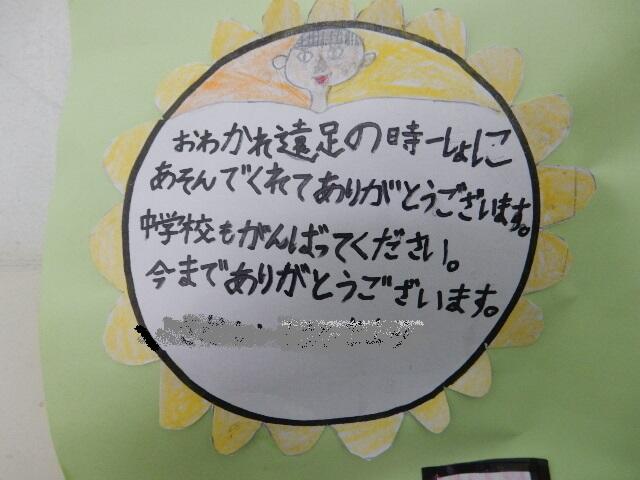 おわかれ遠足の時一しょに
あそんでくれてありがとうございます。
中学校もがんばってください。
今までありがとうございます。